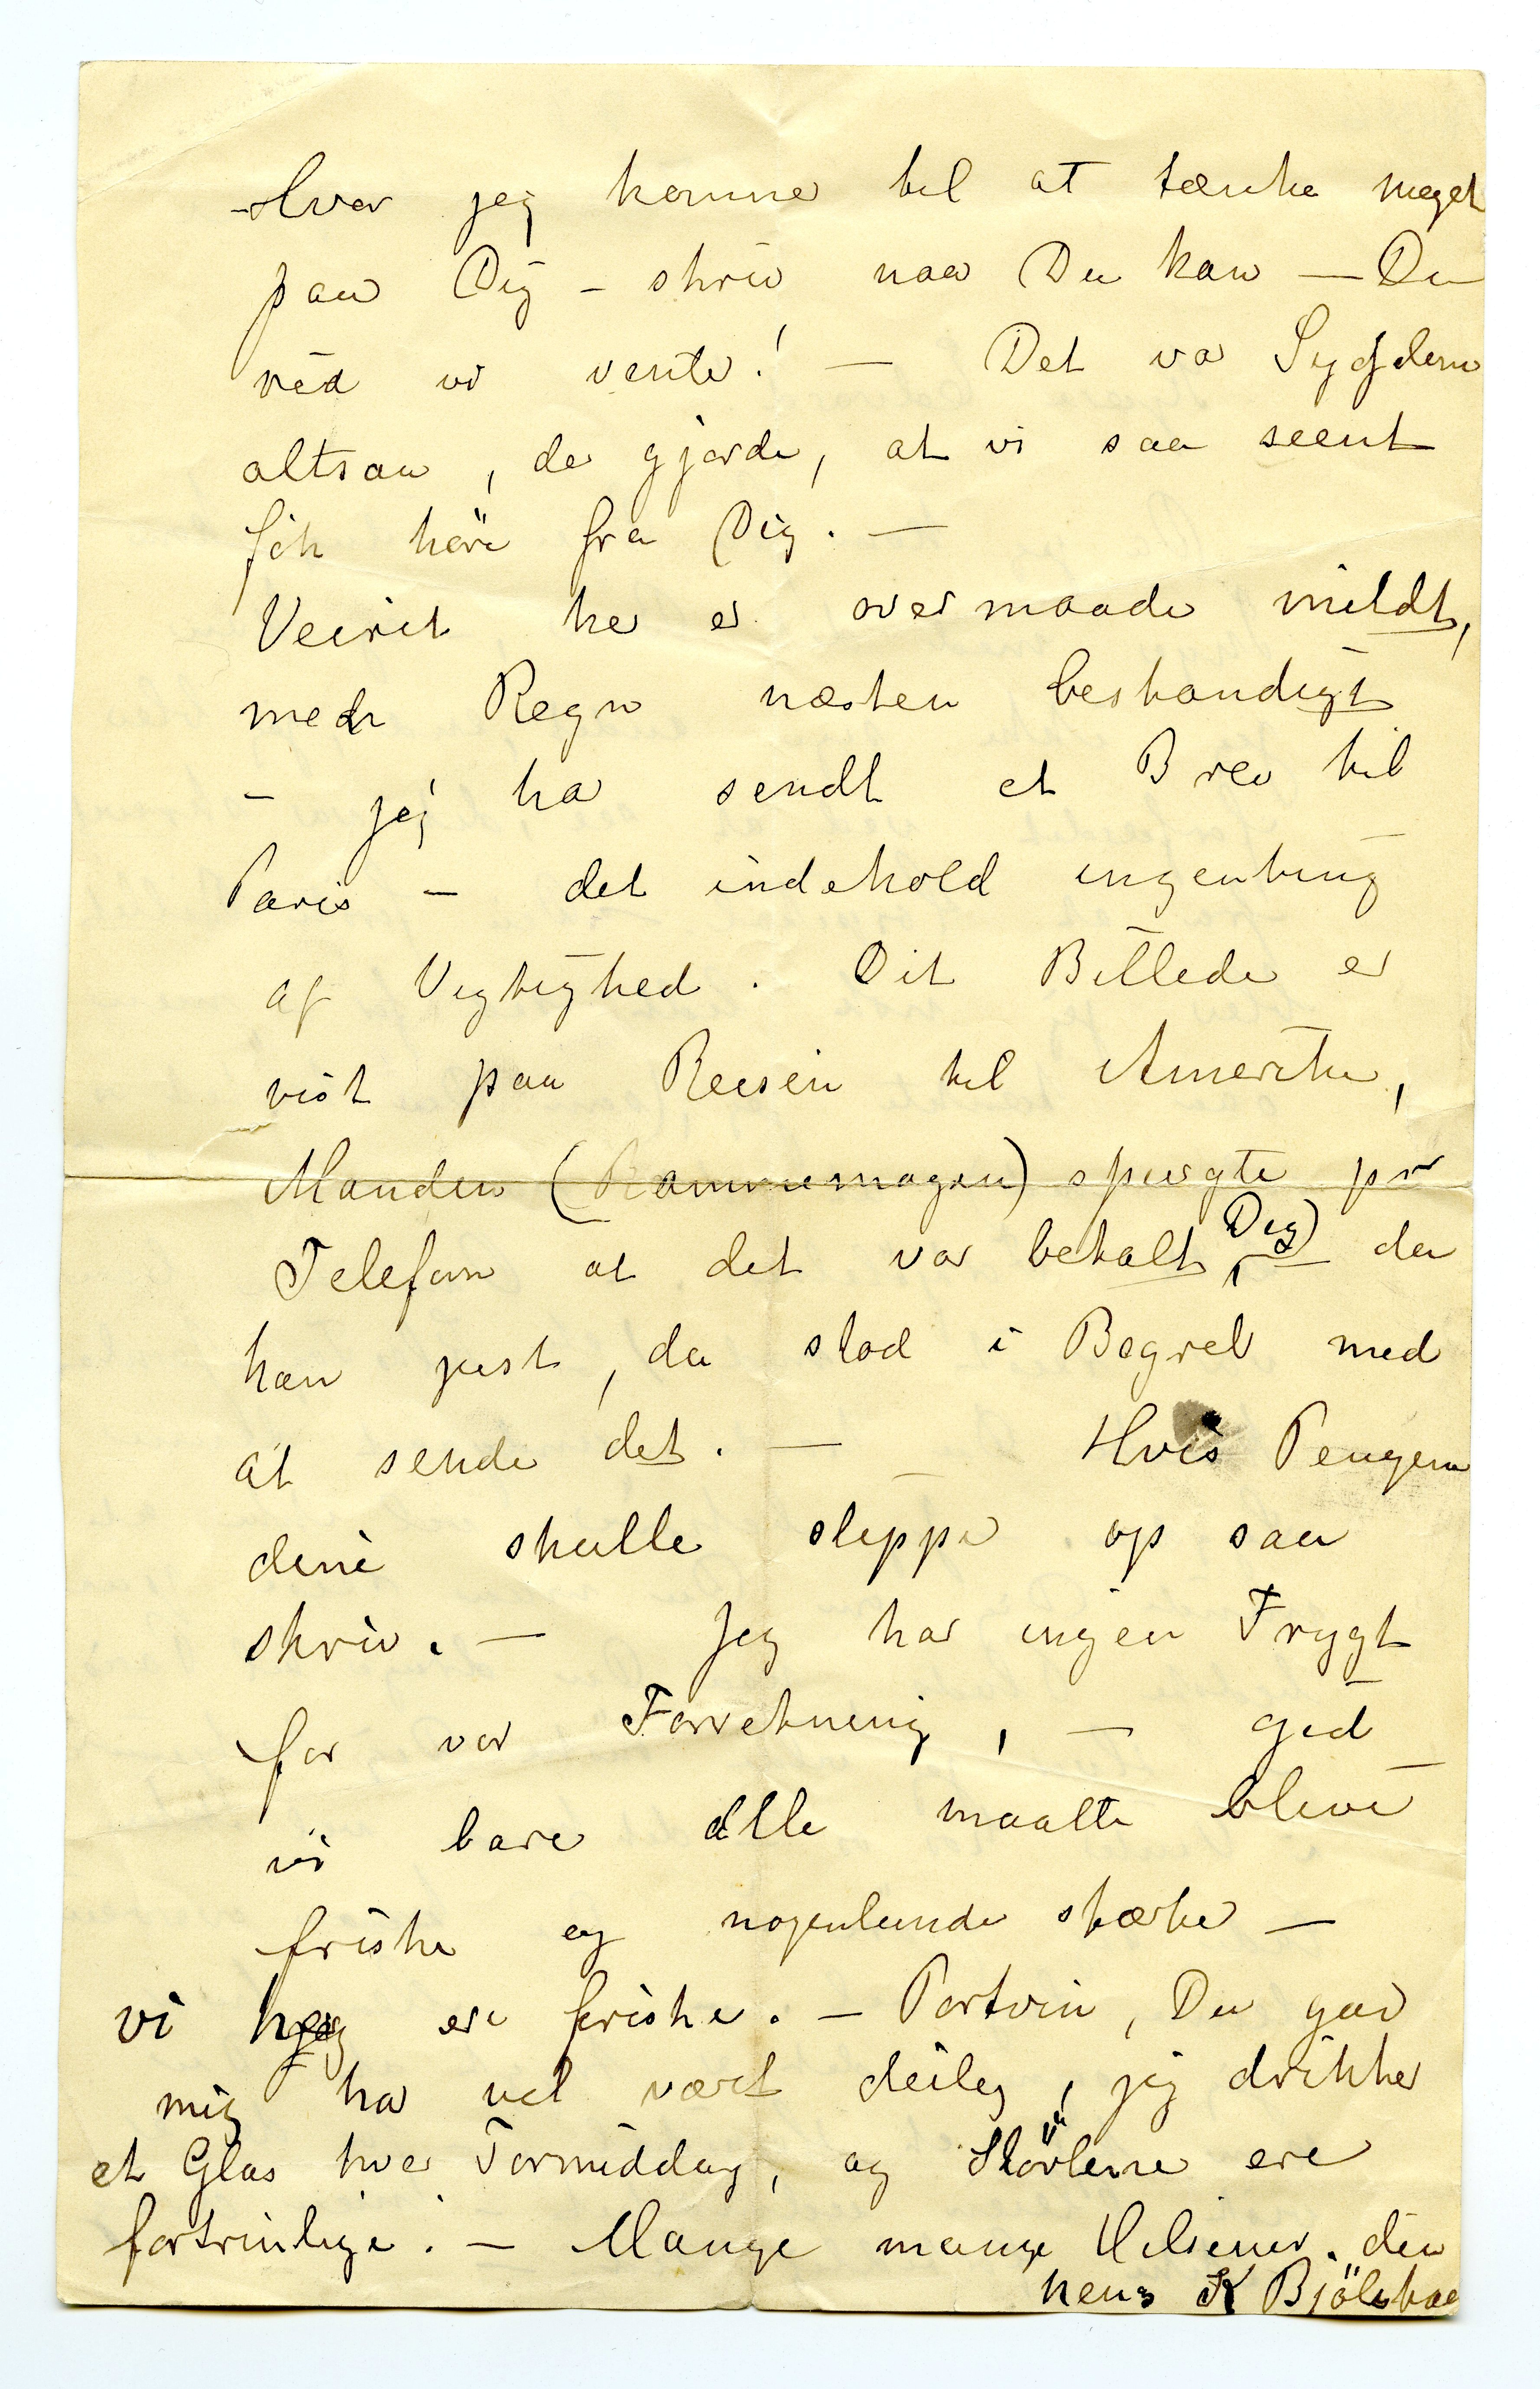 Hver jeg kommer til at tænke meget
paa Dig – skriv naar Du kan — Du
véd vi venter! — Det var Sygdom
altsaa, der gjorde, at vi saa seent
fik höre fra Dig. —
Veiret her er overmaade mildt,
med Regn næsten bestandigt
– jeg har sendt et Brev til
Paris – det indeholdt ingenting
af Vigtighed. Dit Billede er
vist paa Reisen til Amerika,
Manden (Rammemagern) spurgte pr
Telefon at det var betalt Dig da
han just, da stod i Begreb med
at sende det. — Hvis Pengene
dine skulle slippe op saa
skriv. — Jeg har ingen Frygt
for vor Forretning, — gid
vi bare alle maatte blive
friske og nogenlunde stærke —
vi her ere friske. – Portvin, Du gav
mig har vel været deilig, jeg drikker
et Glas hver Formiddag, og Stövlerne ere
fortrinlige. – Mange mange Hilsener. din
K Bjölstad